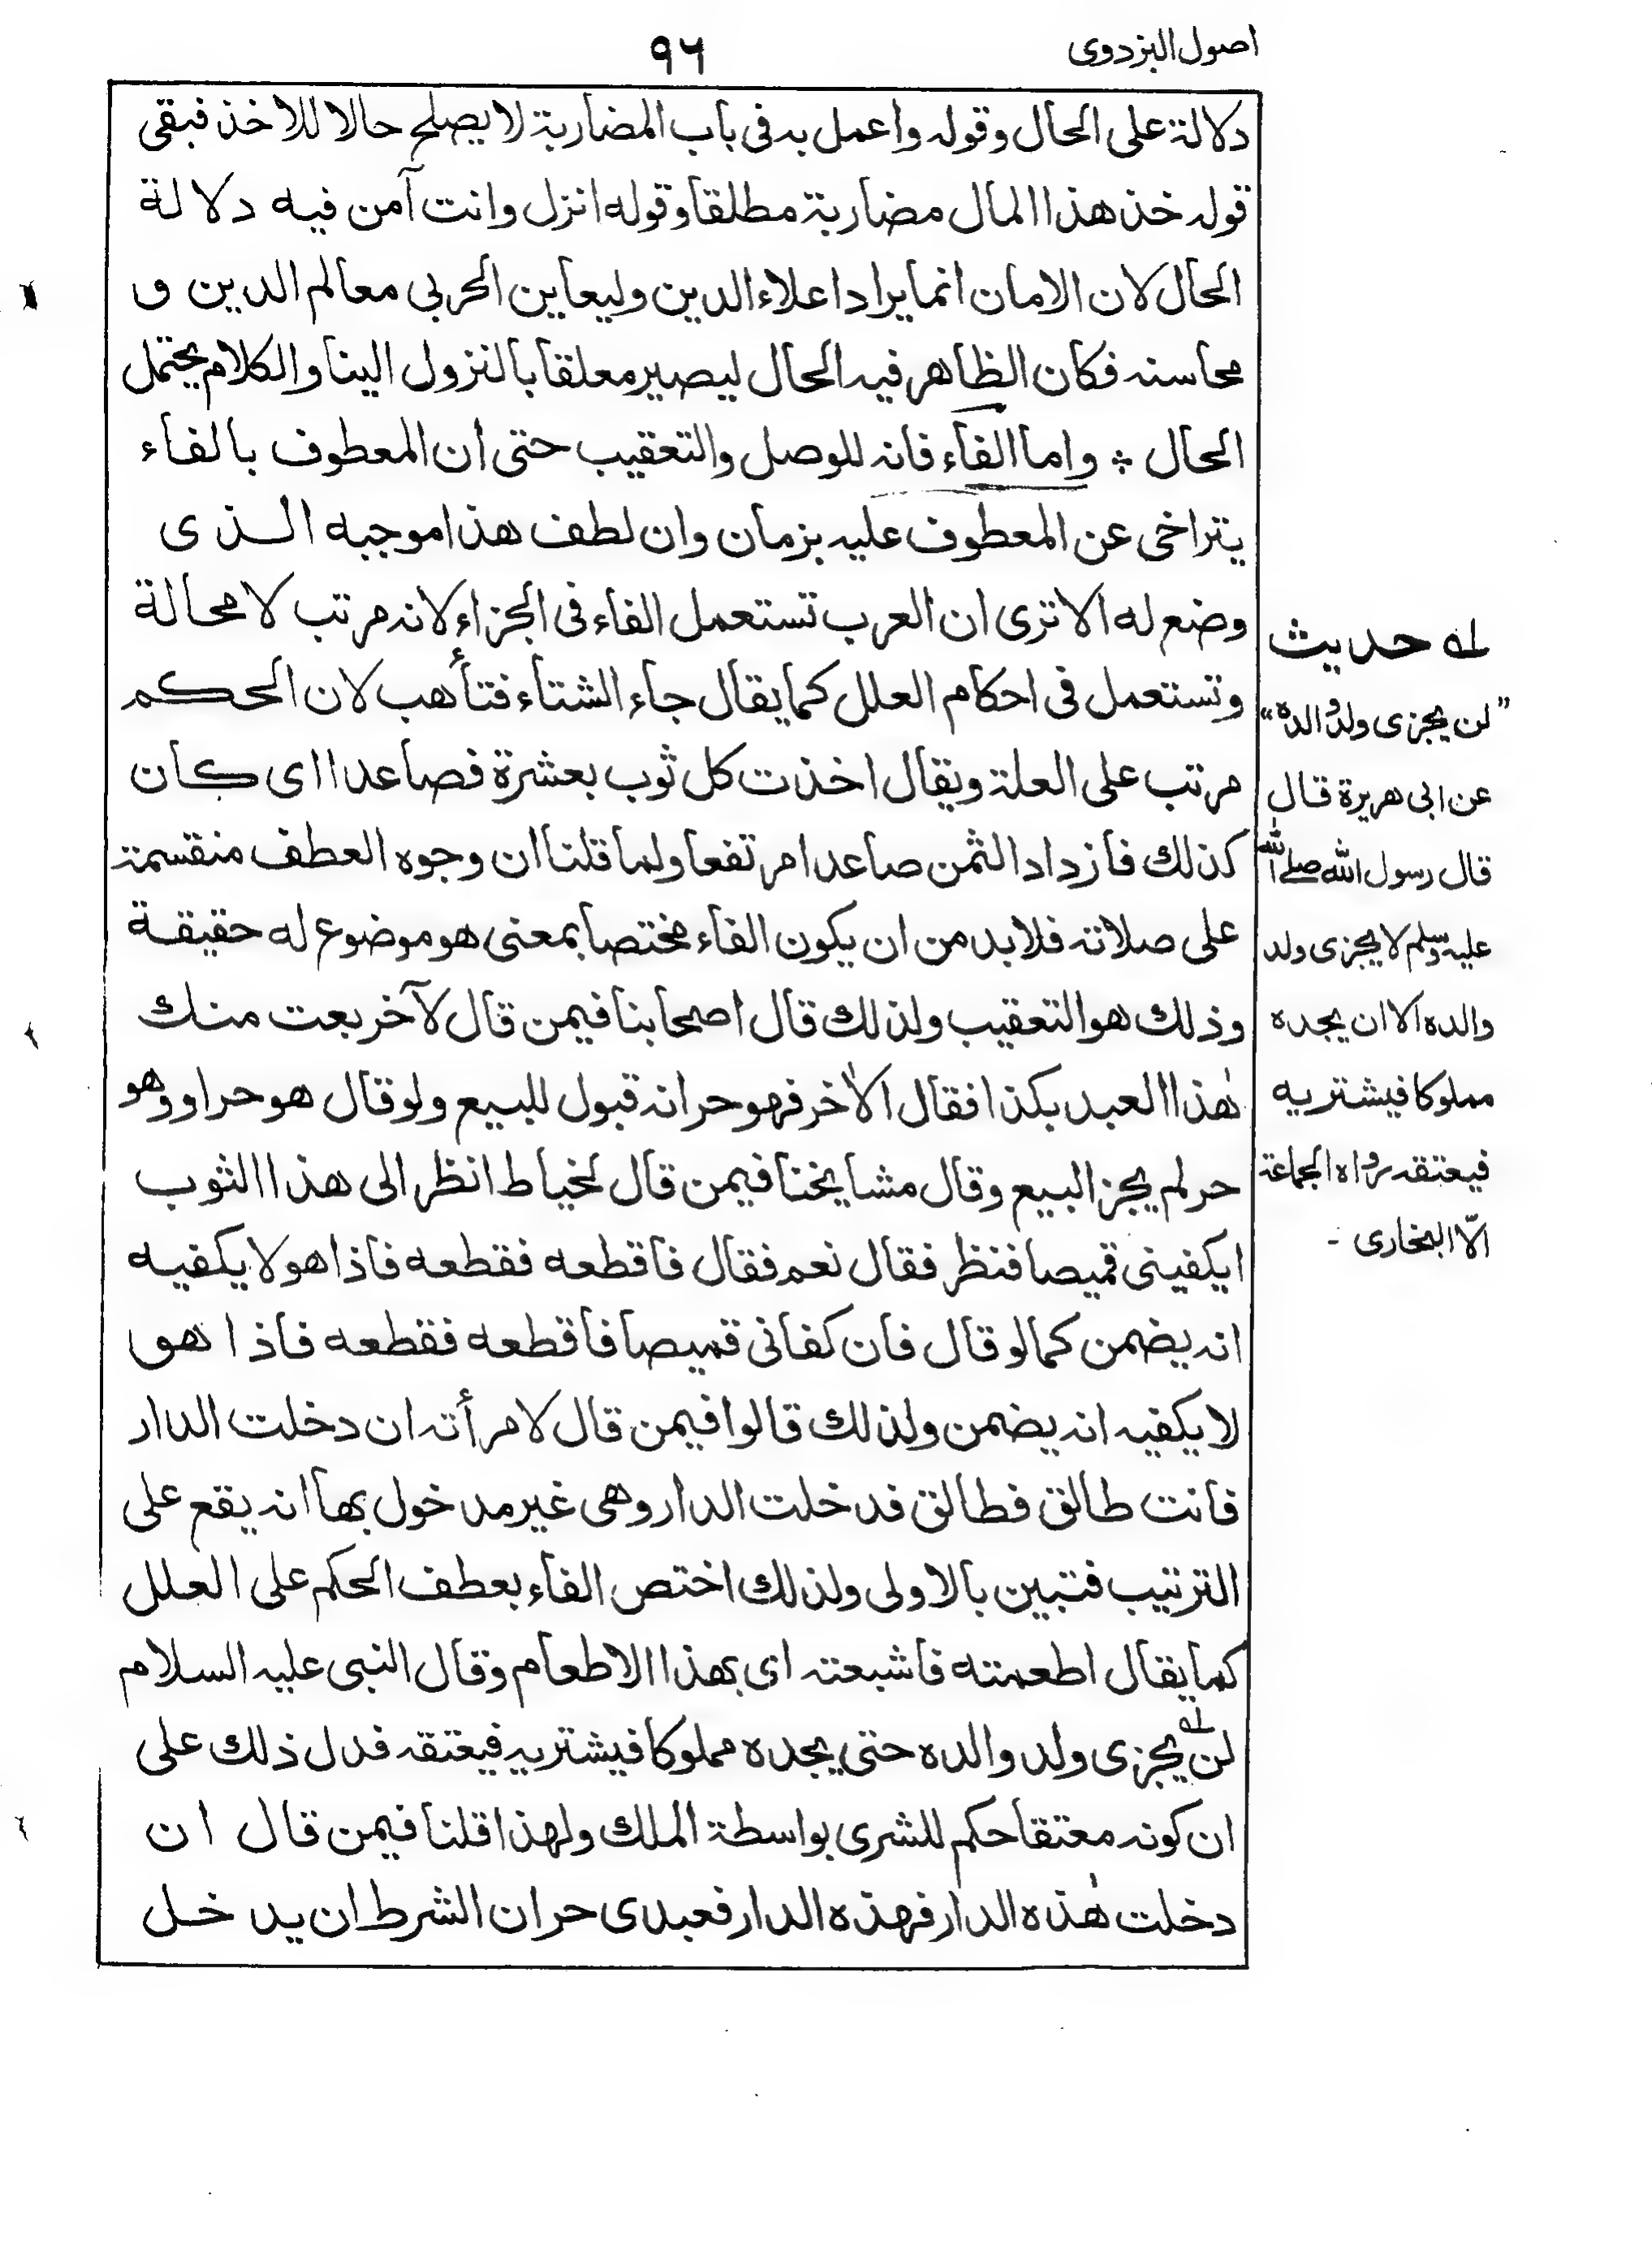 اصول البزدوى
٩٦
دلالة على الحال وقوله واعمل به فى باب المضاربة لا يصلح حالا للاخذ فبقى
قوله خذ هذا المال مضاربة مطلقا وقوله انزل وانت آمن فيه دلالة
الحال لان الامان انما يراد اعلاء الدين وليعاين الحربى معالم الدين و
محاسنه فكان الظاهر فيه الحال ليصير معلقا بالنزول الينا والكلام يحتمل
الحال ⁘ واما الفاء فانه للوصل والتعقيب حتى ان المعطوف بالفاء
يتراخى عن المعطوف عليه بزمان وان لطف هذا موجبه الذى
وضع له الا ترى ان العرب تستعمل الفاء فى الجزاء لانه مرتب لا محالة
وتستعمل فى احكام العلل كما يقال جاء الشتاء فتأهب لان الحكم
مرتب على العلة ويقال اخذت كل ثوب بعشرة فصاعدا اى كان
كذلك فازداد الثمن صاعدا مرتفعا ولما قلنا ان وجوه العطف منقسمة
على صلاته فلا بد من ان يكون الفاء مختصا بمعنى هو موضوع له حقيقة
وذلك هو التعقيب ولذلك قال اصحابنا فيمن قال لآخر بعت منك
هٰذا العبد بكذا فقال الاٰخر فهو حر انه قبول للبيع ولو قال هو حر او وهو
حر لم يجز البيع وقال مشايخنا فيمن قال لخياط انظر الى هذا الثوب
ايكفينى قميصا فنظر فقال نعم فقال فاقطعه فقطعه فاذا هو لا يكفيه
انه يضمن كما لو قال فان كفانى قميصا فاقطعه فقطعه فاذا هو
لا يكفيه انه يضمن ولذلك قالوا فيمن قال لامرأته ان دخلت الدار
فانت طالق فطالق فدخلت الدار وهى غير مدخول بها انه يقع على
الترتيب فتبين بالاولى ولذلك اختص الفاء بعطف الحكم على العلل
كما يقال اطعمته فاشبعته اى بهذا الاطعام وقال النبى عليه السلام
لن يجزى ولد والده حتى يجده مملوكا فيشتريه فيعتقه فدل ذلك على
ان كونه معتقا حكم للشرى بواسطة الملك ولهذا قلنا فيمن قال ان
دخلت هٰذه الدار فهذه الدار فعبدى حر ان الشرط ان يدخل
له حديث
"لن يجزى ولد والده"
عن ابى هريرة قال
قال رسول الله صلے الله
عليه وسلم لا يجزى ولد
والده الا ان يجده
مملوكا فيشتريه
فيعتقه رواه الجماعة
الّا البخارى -